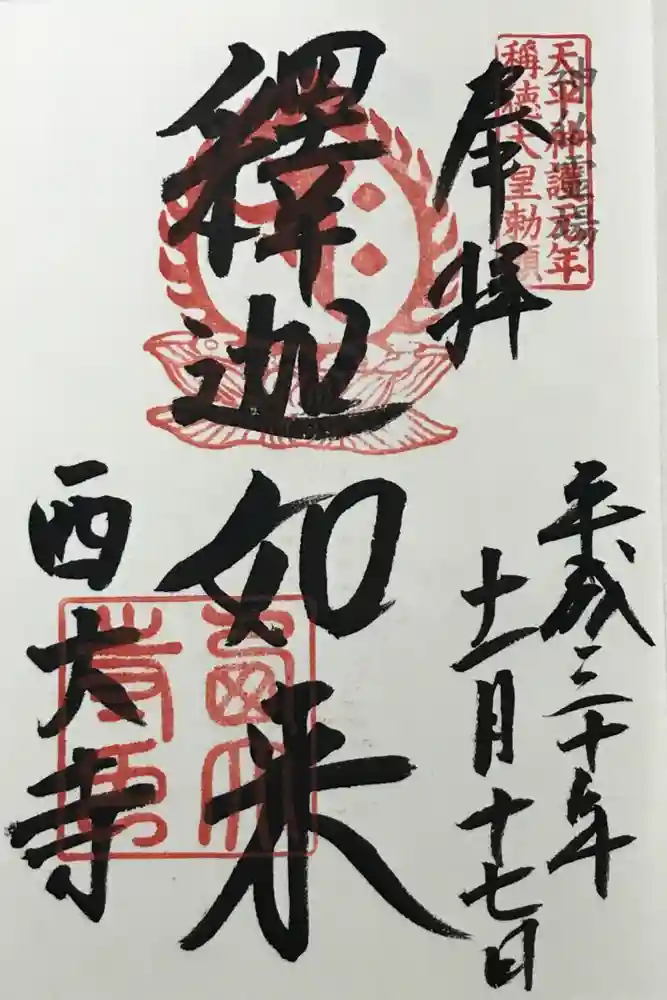 天平神護元年
稱徳天皇勅願
神仏霊場
奉拝
平成三十年
十一月十七日
釋迦如来
西大寺